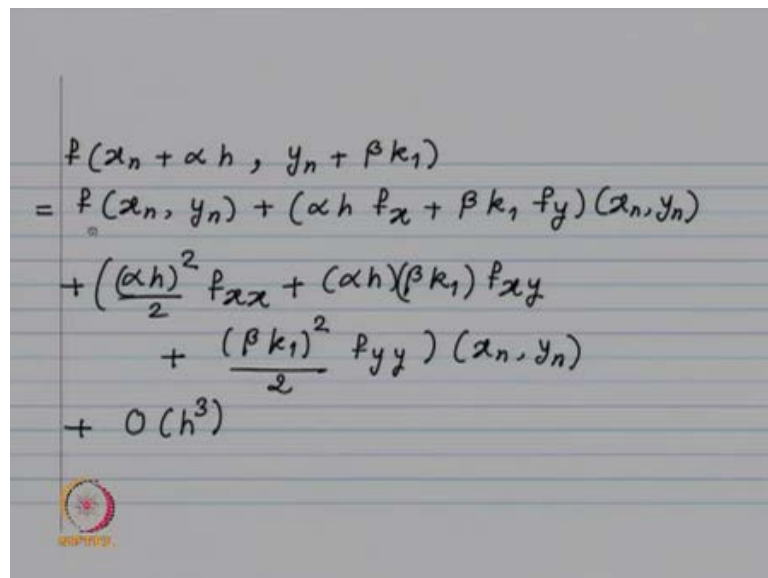 f(xₙ + αh , yₙ + βk₁)
= f(xₙ, yₙ) + (αh fₓ + βk₁ f_y)(xₙ, yₙ)
+ ((αh)²/2 fₓₓ + (αh)(βk₁) f_xy
+ (βk₁)²/2 f_yy ) (xₙ, yₙ)
+ O(h³)